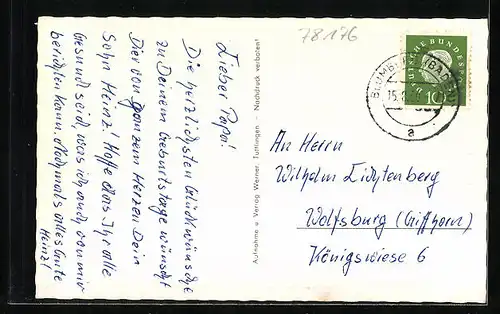 78176
Lieber Papa!
Die herzlichsten Glückwünsche
zu Deinem Geburtstage wünscht
Dir von ganzem Herzen Dein
Sohn Heinz! Hoffe dass Ihr alle
Gesund seid, was ich auch von mir
berichten kann. Nochmals alles Gute
Heinz!
Aufnahme u. Verlag Werner, Tuttlingen - Nachdruck verboten!
DEUTSCHE BUNDESPOST
10
(BADEN)
15.
a
An Herrn
Wilhelm Lichtenberg
Wolfsburg (Gifhorn)
Königswiese 6